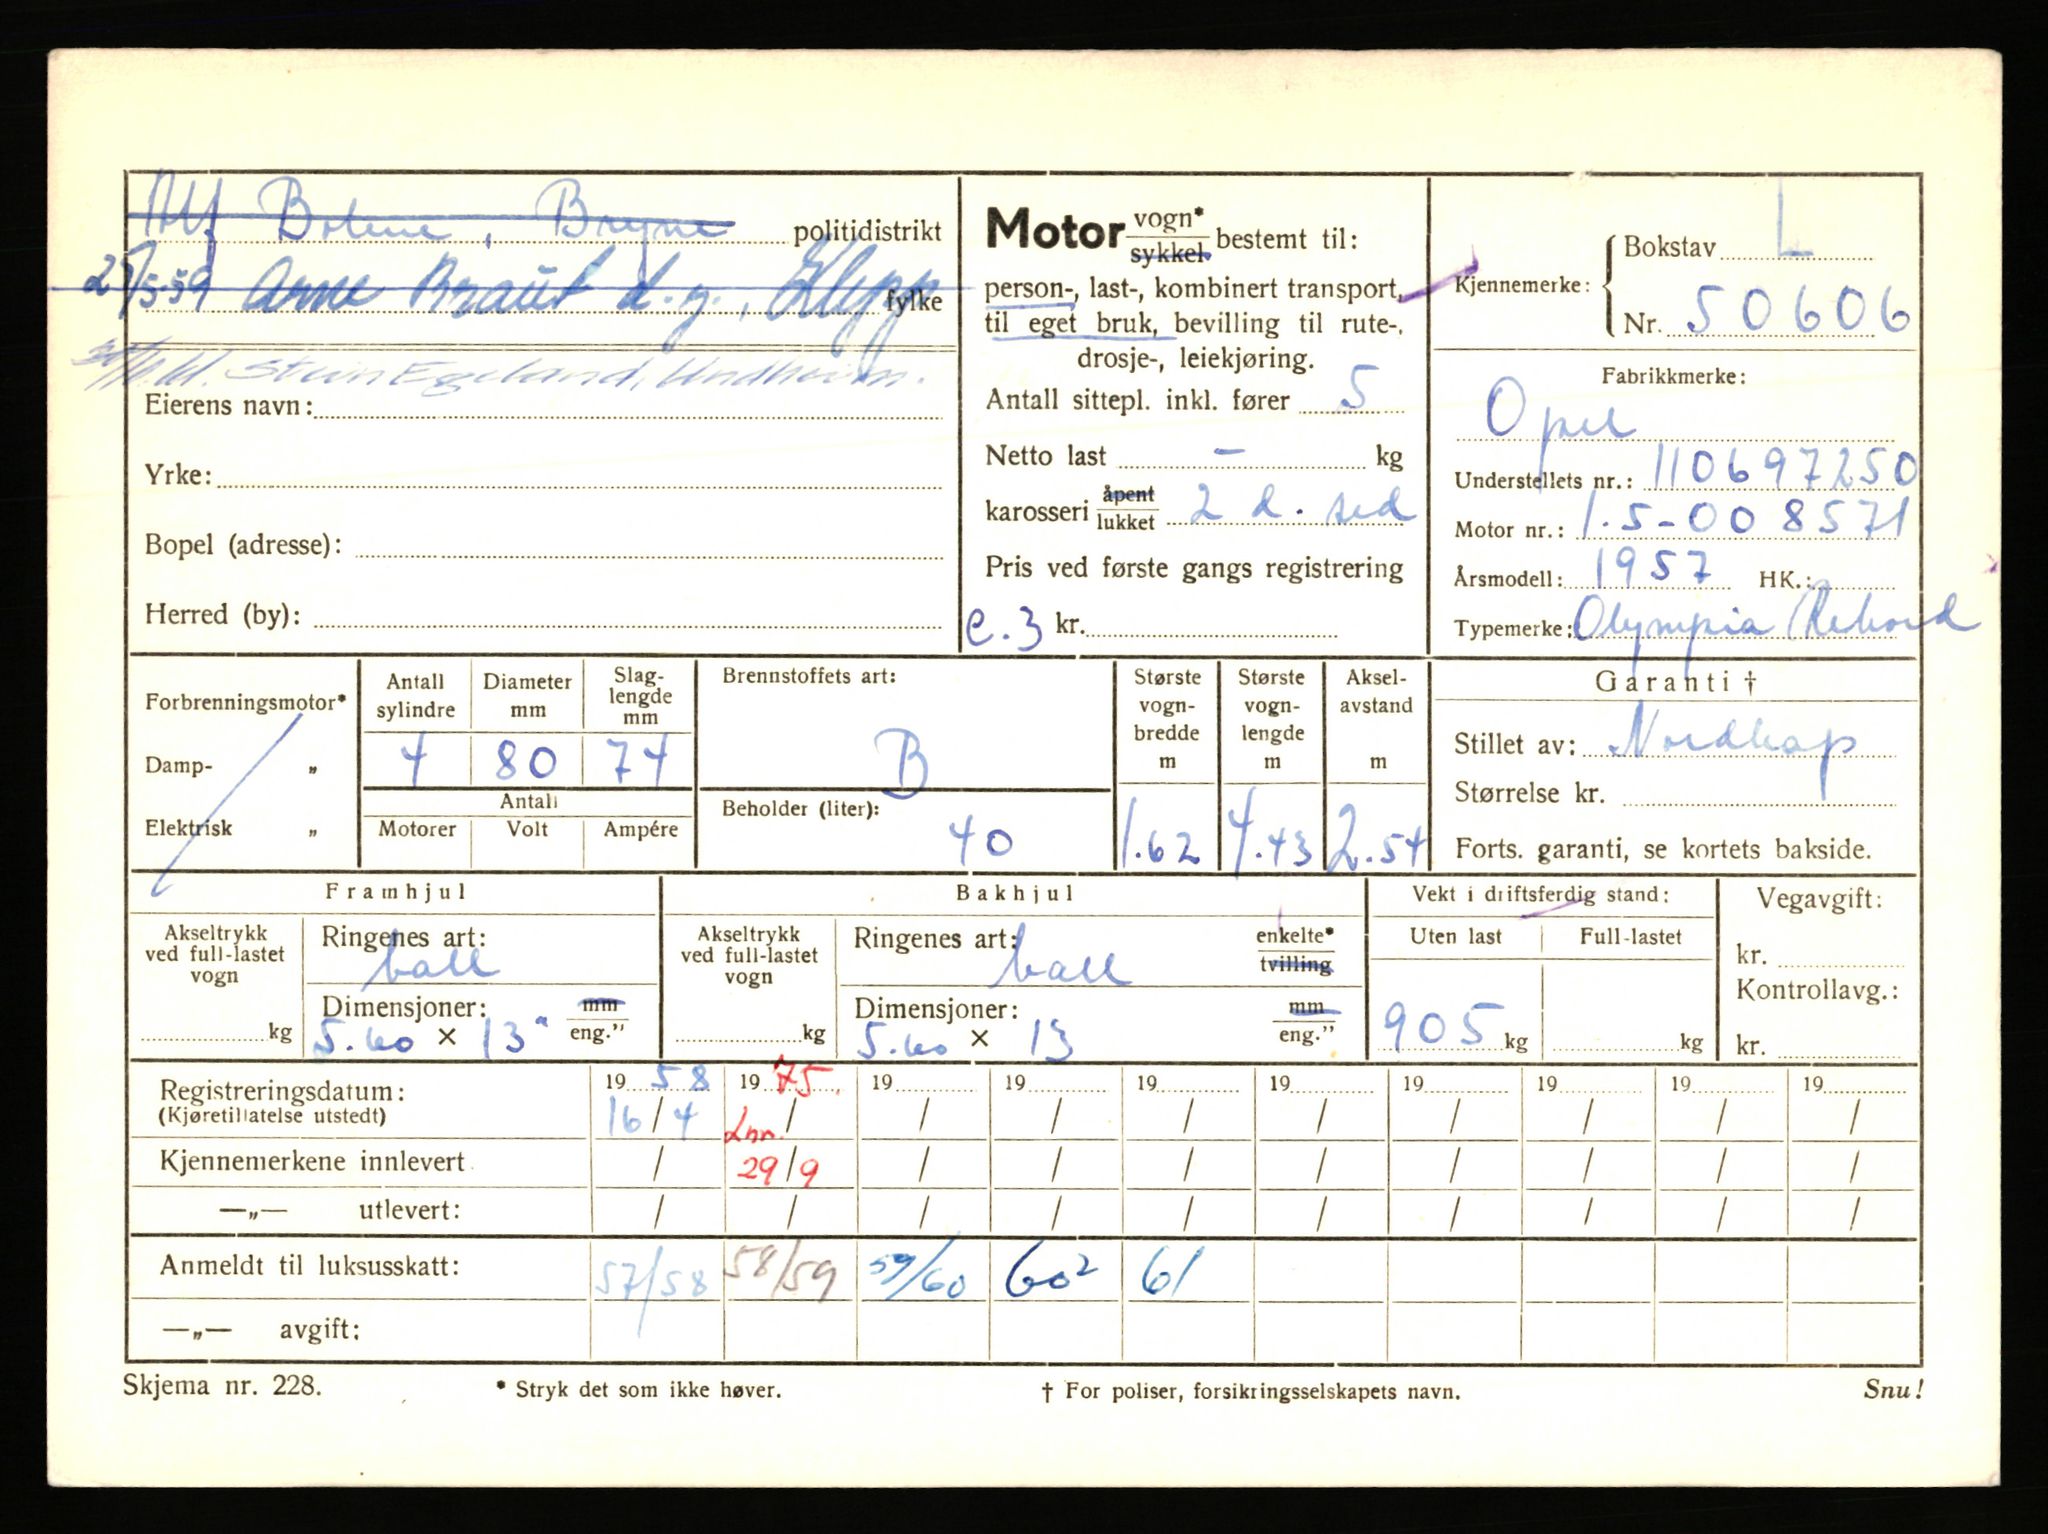 Alf Bolme, Bryne politidistrikt
27/5-59 Arne Braut d.y., Klepp fylke
Stein Egeland, Undheim.
Eierens navn:
Yrke:
Bopel (adresse):
Herred (by):
Motor vogn* sykkel bestemt til:
person-, last-, kombinert transport,
til eget bruk, bevilling til rute-,
drosje-, leiekjøring.
Antall sittepl. inkl. fører 5
Netto last – kg
karosseri åpent lukket 2 d. sed
Pris ved første gangs registrering
e.3 kr.
Kjennemerke: Bokstav L
Nr. 50606
Fabrikkmerke:
Opel
Understellets nr.: 110697250
Motor nr.: 1.5-008571
Årsmodell: 1957 HK.:
Typemerke: Olympia Rekord
Forbrenningsmotor*
Damp- „
Elektrisk „
Antall sylindre Diameter mm Slaglengde mm
4 80 74
Antall
Motorer Volt Ampére
Brennstoffets art:
B
Beholder (liter):
40
Største vogn- bredde m
1.62
Største vogn- lengde m
4.43
Aksel- avstand m
2.54
Garanti †
Stillet av: Nordkap
Størrelse kr.
Forts. garanti, se kortets bakside.
Framhjul
Akseltrykk ved full-lastet vogn
kg
Ringenes art:
ball
Dimensjoner: mm
5.60 × 13" eng."
Bakhjul
Akseltrykk ved full-lastet vogn
kg
Ringenes art: enkelte*
ball tvilling
Dimensjoner: mm
5.60 × 13 eng."
Vekt i driftsferdig stand:
Uten last Full-lastet
905 kg kg
Vegavgift:
kr.
Kontrollavg.:
kr.
Registreringsdatum: 19 58 19 75 19 19 19 19 19 19 19 19
(Kjøretillatelse utstedt) 16/4 Inn. / / / / / / / / /
Kjennemerkene innlevert / 29/9 / / / / / / / /
—„— utlevert: / / / / / / / / / /
Anmeldt til luksusskatt: 57/58 58/59 59/60 60² 61
—„— avgift:
Skjema nr. 228. * Stryk det som ikke høver. † For poliser, forsikringsselskapets navn. Snu!